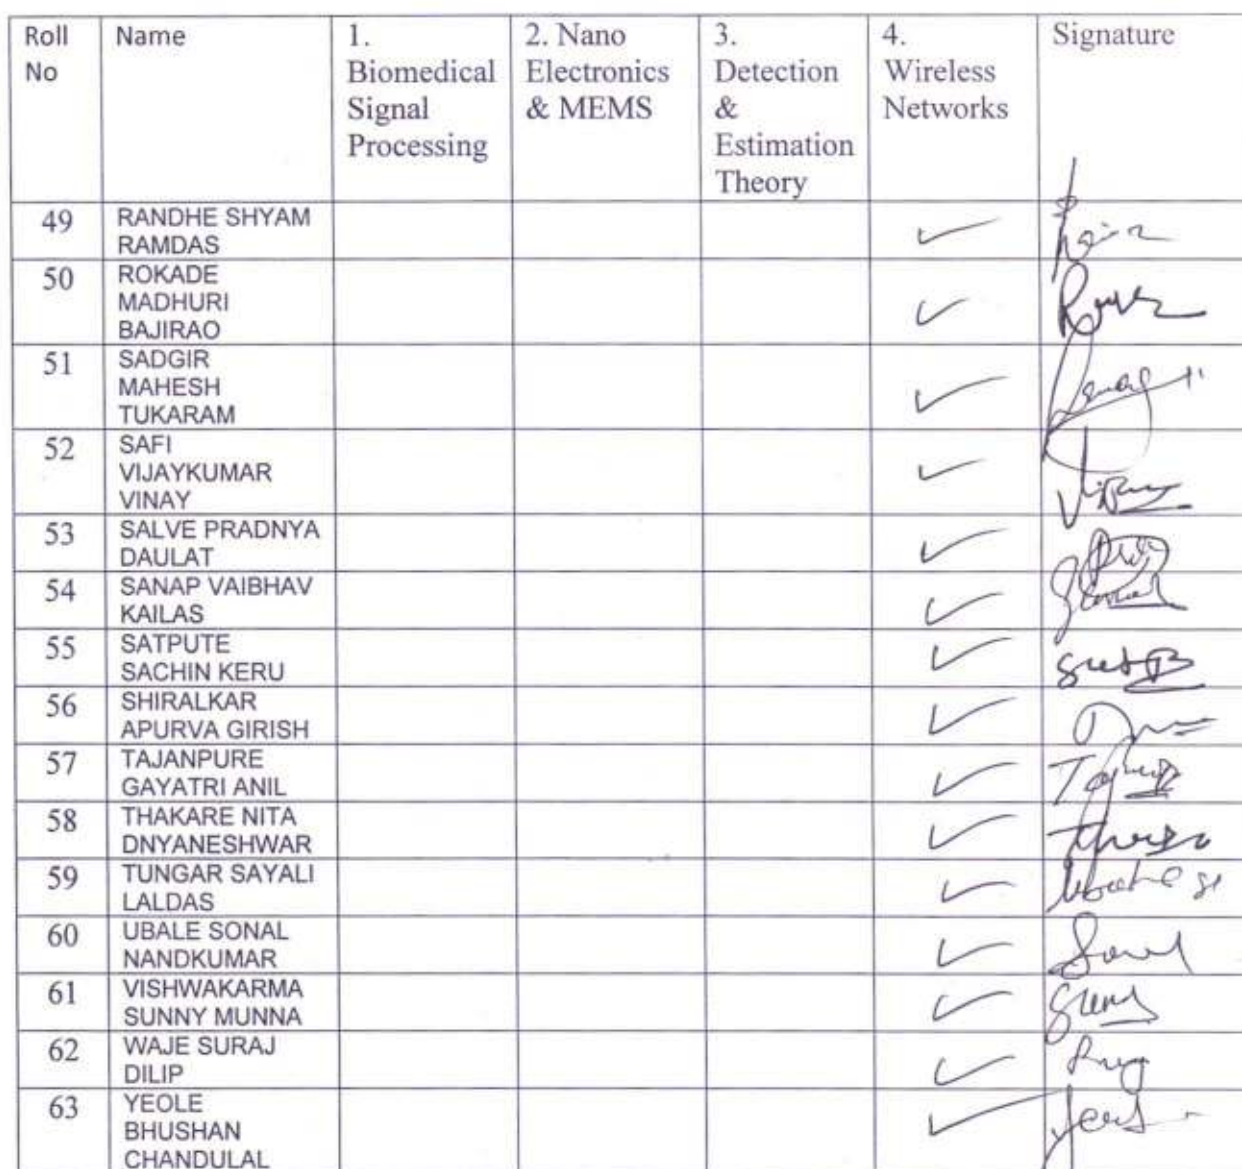 Roll No
Name
1. Biomedical Signal Processing
2. Nano Electronics & MEMS
3. Detection & Estimation Theory
4. Wireless Networks
Signature
49 RANDHE SHYAM
RAMDAS
50 ROKADE
MADHURI
BAJIRAO
51 SADGIR
MAHESH
TUKARAM
52 SAFI
VIJAYKUMAR
VINAY
53 SALVE PRADNYA
DAULAT
54 SANAP VAIBHAV
KAILAS
55 SATPUTE
SACHIN KERU
56 SHIRALKAR
APURVA GIRISH
57 TAJANPURE
GAYATRI ANIL
58 THAKARE NITA
DNYANESHWAR
59 TUNGAR SAYALI
LALDAS
60 UBALE SONAL
NANDKUMAR
61 VISHWAKARMA
SUNNY MUNNA
62 WAJE SURAJ
DILIP
63 YEOLE
BHUSHAN
CHANDULAL